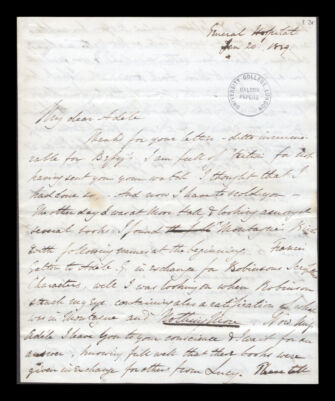 General Hospital
Jan 20' 1889
UNIVERSITY COLLEGE LONDON
GALTON PAPERS
My dear Adele
Thanks for your letter - ditto innumerable for Bessy's. I am full of for not
having sent you your watch I thought that I
had done so - And now I have to scold you -
The other day I was at Moor Hall & looking amongst
several books I found Montaigne
with following names at the beginning - Francis
Galton to Adele G in exchange for Robinsons Script
Characters, well I was looking on when Robinson
struck my eye containing also a ratification of what
was in Montaigne and Nothing More - Now my
Adele I leave you to your conscience & wait for an
answer, knowing full well that these books were
given in exchange for others from Lucy. Please tell